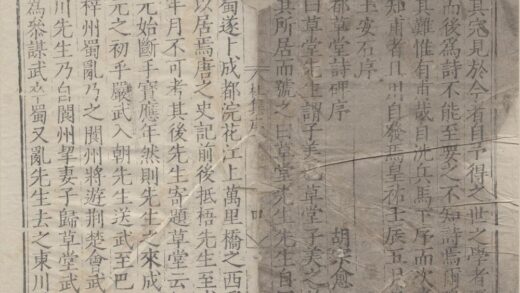 其完見於今者自予得之世之學者
而後為詩不能至要之不知詩焉爾
其難惟有甫哉自洗兵馬下序而次
知甫者且用自發焉皇祐壬辰五月
王安石序
都草堂詩碑序
胡 愈
曰草堂先生謂子美也草堂子美之
其所居而號之曰草堂先生先生自
蜀遂卜成都浣花江上萬里橋之西
以居焉唐之史記前後抵梧先生至
年月不可考其後先生寄題草堂云
元始斷手寶應年然則先生之來成
元之初乎嚴武入朝先生送武至巴
梓州蜀亂乃之閬州將遊荆楚會武
川先生乃自閬州挈妻子歸草堂武
為參謀武卒蜀又亂先生去之東川